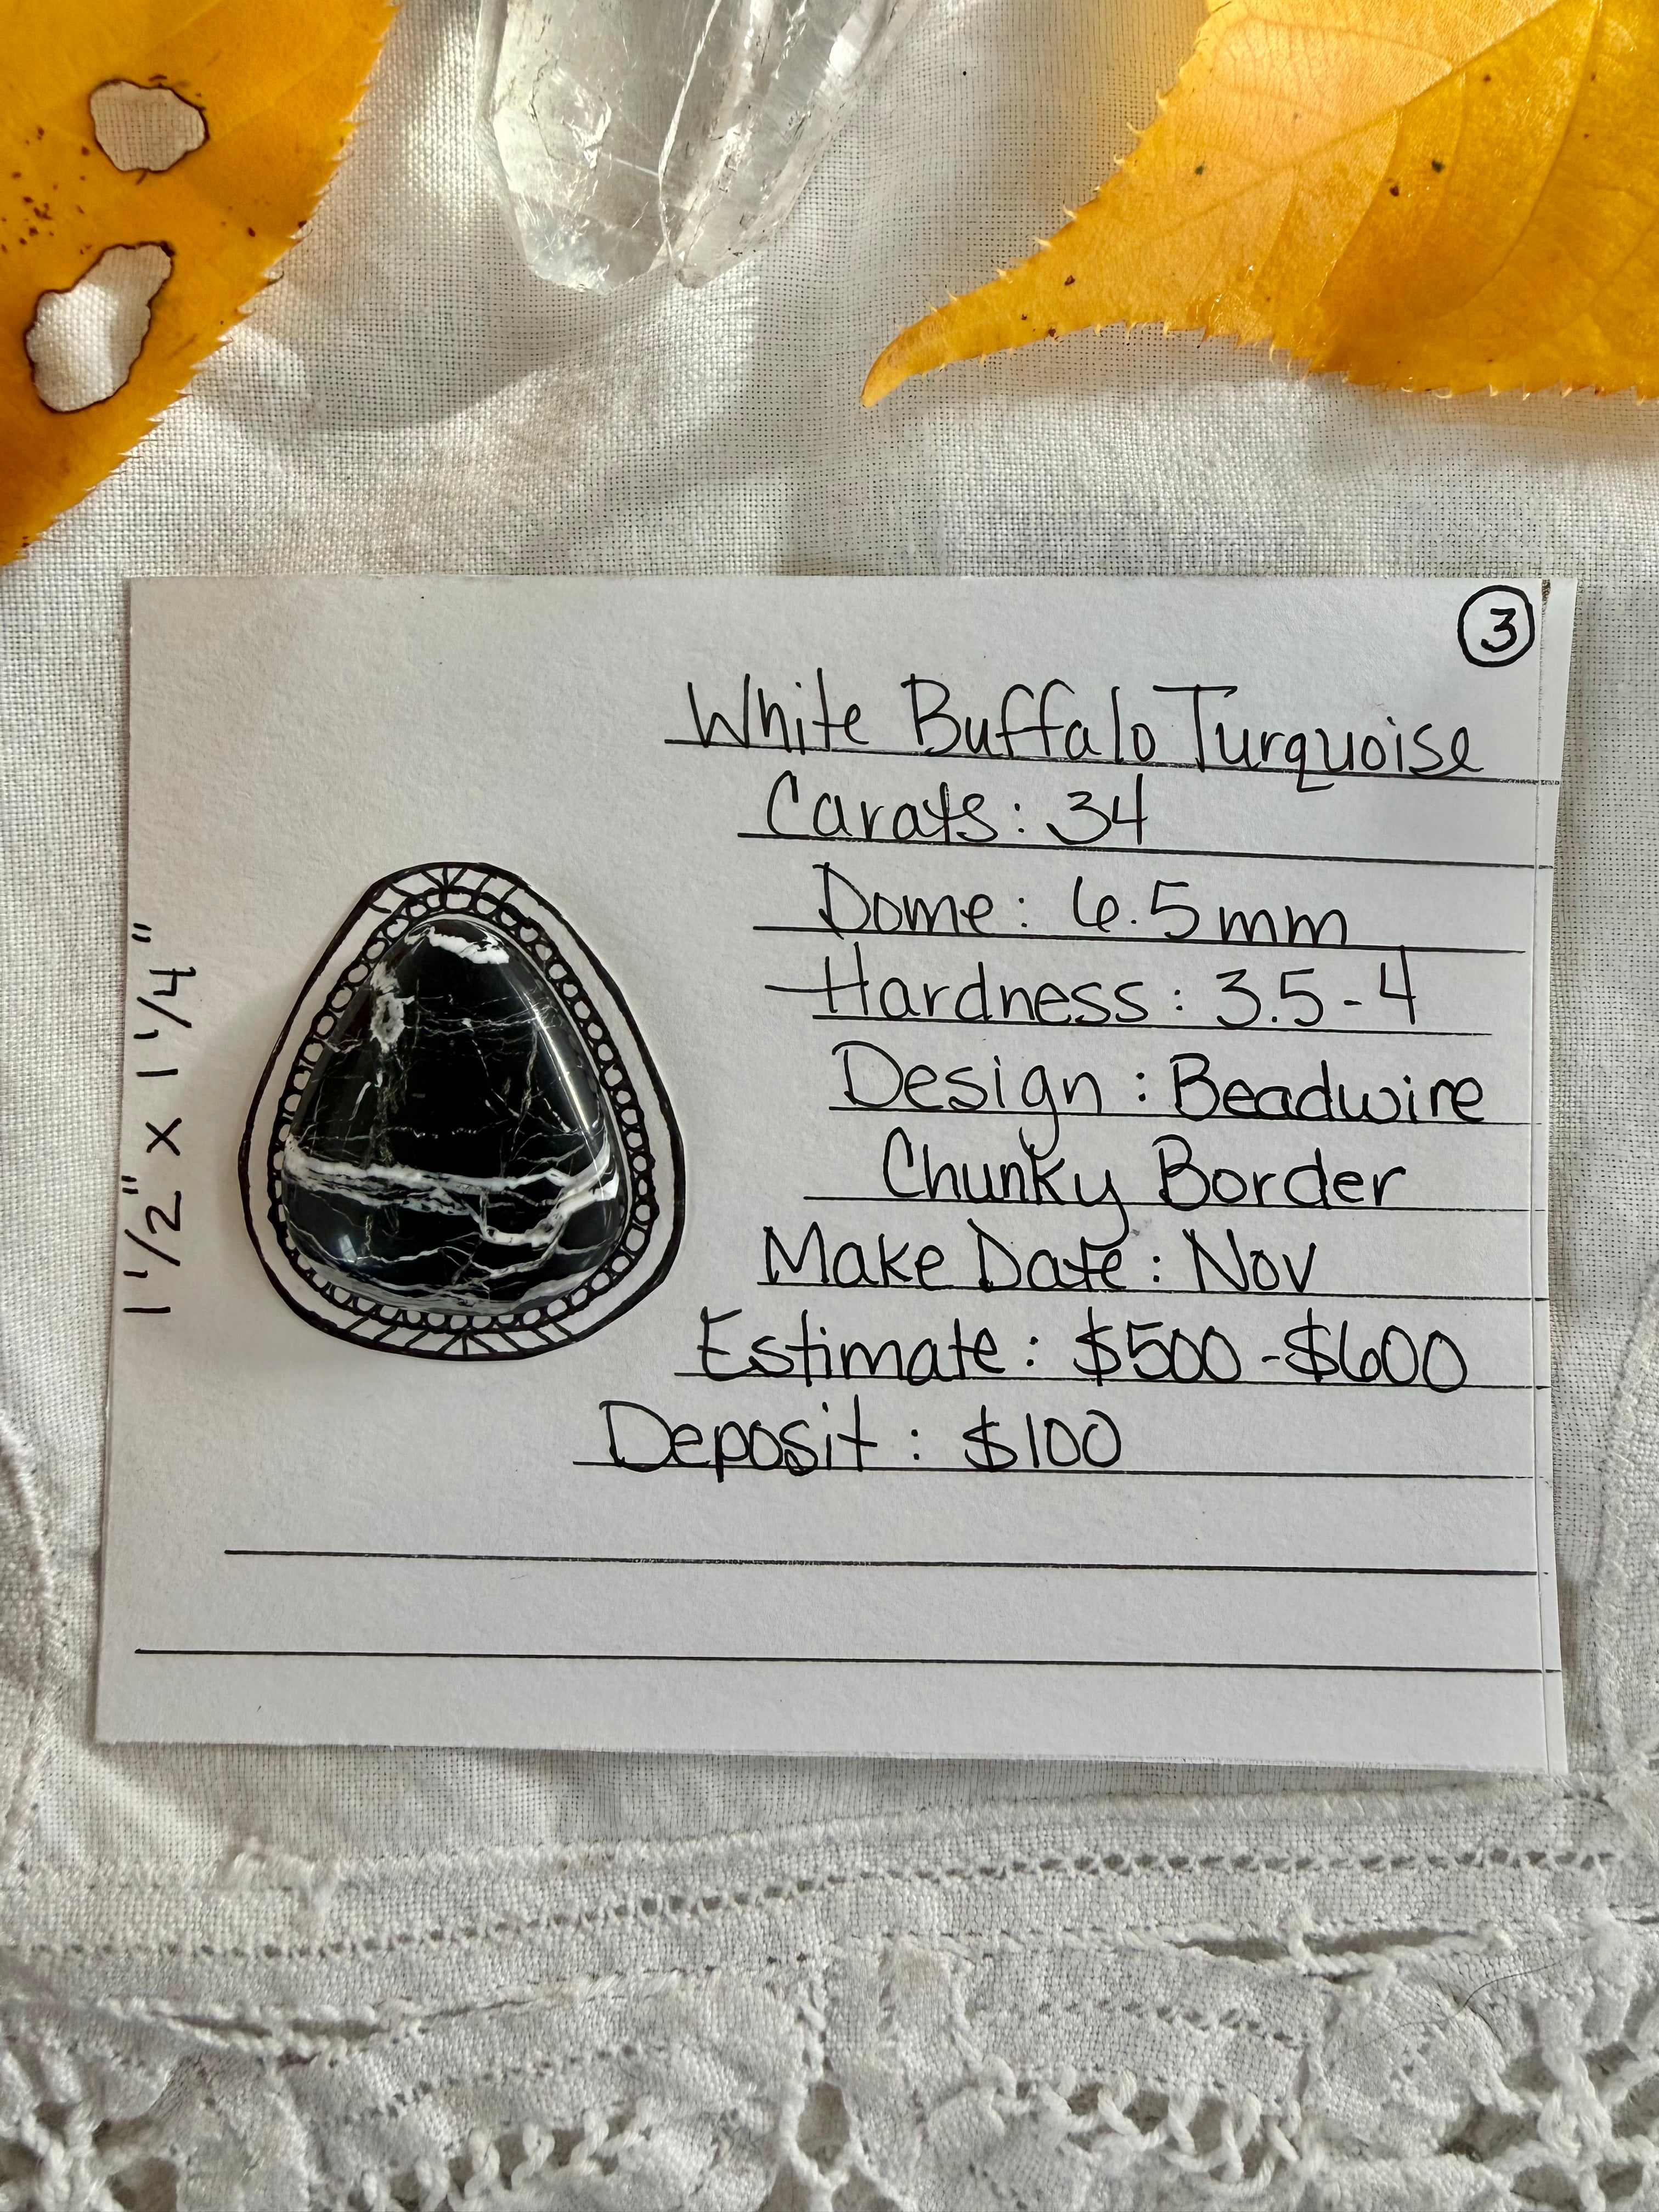 3
White Buffalo Turquoise
Carats: 34
Dome: 6.5mm
Hardness: 3.5-4
Design: Beadwire
Chunky Border
Make Date: Nov
Estimate: $500-$600
Deposit: $100
1 1/2" x 1 1/4"